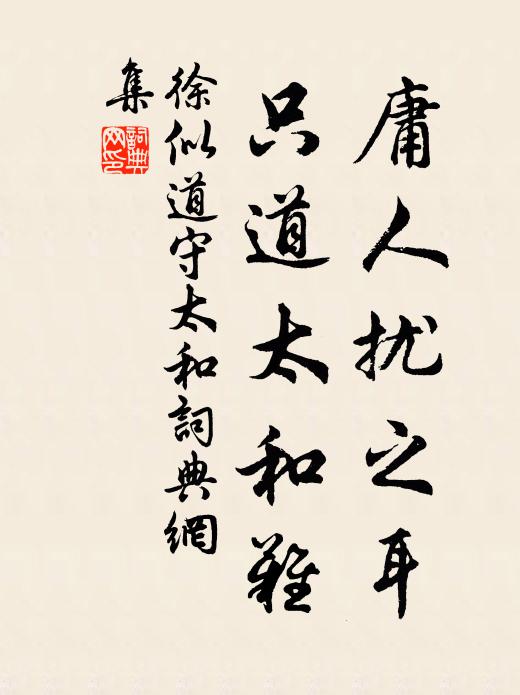 庸人扰之耳
只道太和難
徐似道守太和詞典網
集
詞典网印